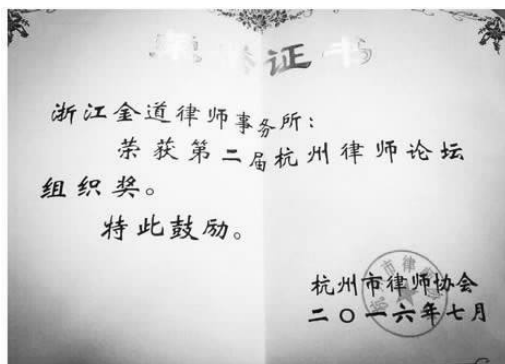 荣誉证书
浙江金道律师事务所：
荣获第二届杭州律师论坛
组织奖。
特此鼓励。
杭州市律师协会
二〇一六年七月